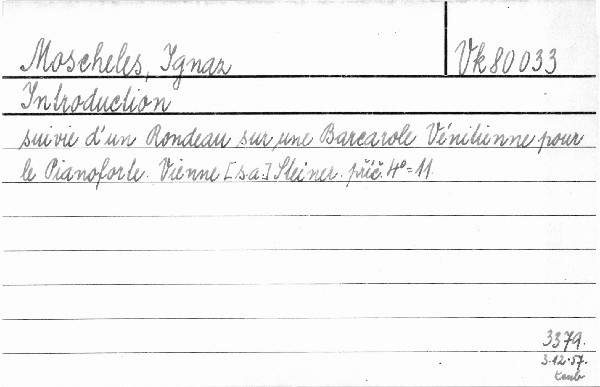 Moscheles, Ignaz
Vk 80033
Introduction
suivie d'un Rondeau sur une Barcarole Vénitienne pour
le Pianoforte. Vienne [s.a.] Steiner. příč. 4° = 11.
3379.
3.12.57.